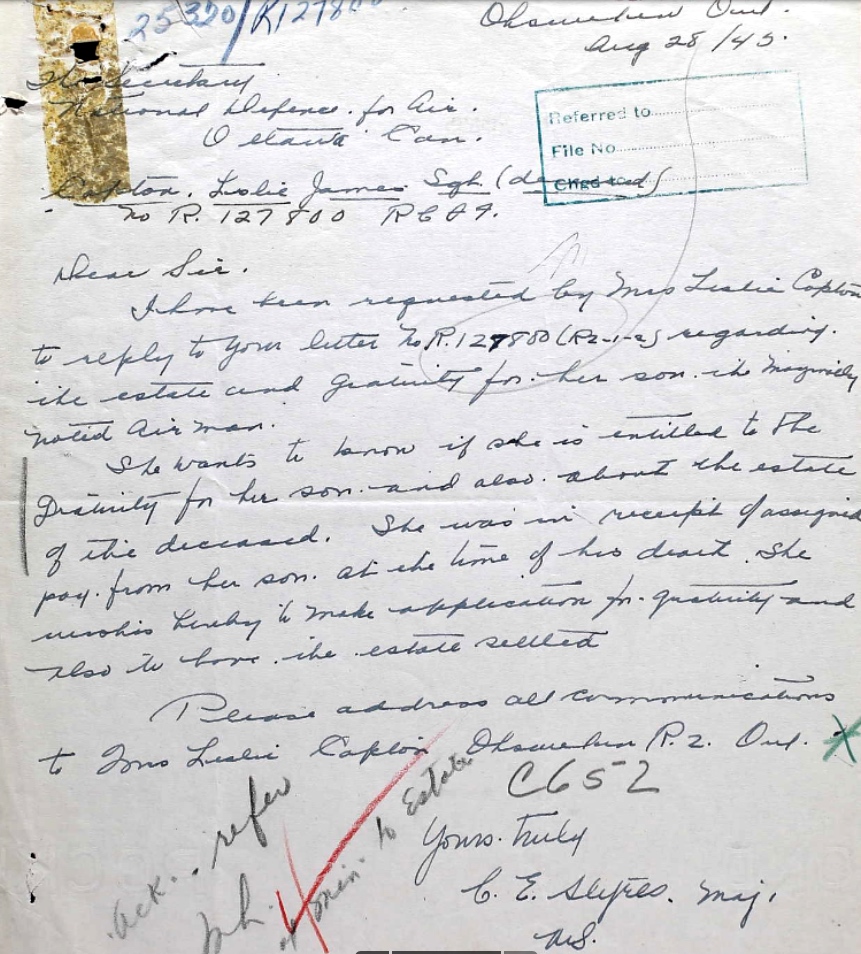 25-320/R127800
Ohsweken Ont.
Aug 28/45.
The Secretary
National Defence. for Air.
Ottawa Can.
Referred to
File No
Chgd to
Capton. Leslie James Sgt. (deceased)
No R. 127800 R C A F.
Dear Sir.
I have been requested by Mrs Leslie Capton
to reply to your letter No R.127800 (R2-1-2) regarding.
the estate and gratuity for. her son. the
noted Air man.
She wants to know if she is entitled to the
Gratuity for her son. and also. about the estate
of the deceased. She was in receipt of assigned
pay. from her son. at the time of his death. She
wishes hereby to make application for. gratuity and
also to have. the estate settled
Please address all communications
to Mrs Leslie Capton Ohsweken R.2. Ont.
C652
Ack.. refer
to Estate
Yours. truly
C. E. Maj.